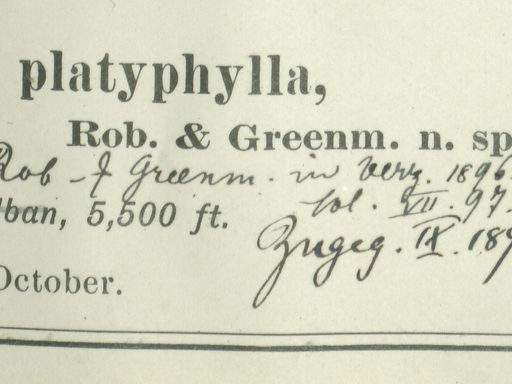 platyphylla,
Rob. & Greenm. n. sp
Rob & Greenm. in Verz. 1896.
lban, 5,500 ft.
sol. VII. 97.
Zugeg. IX. 189
October.